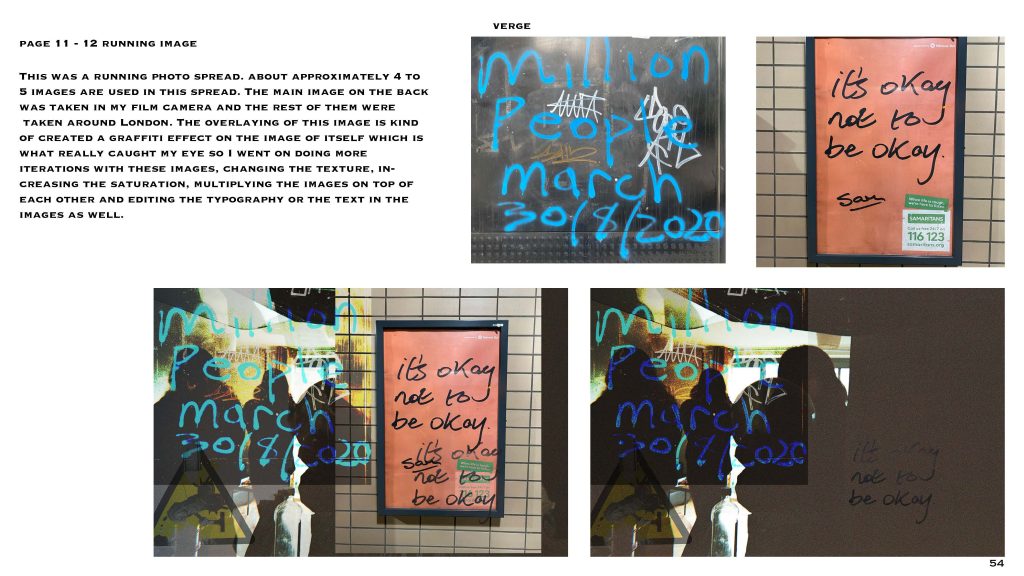 VERGE
PAGE 11 - 12 RUNNING IMAGE
THIS WAS A RUNNING PHOTO SPREAD. ABOUT APPROXIMATELY 4 TO
5 IMAGES ARE USED IN THIS SPREAD. THE MAIN IMAGE ON THE BACK
WAS TAKEN IN MY FILM CAMERA AND THE REST OF THEM WERE
TAKEN AROUND LONDON. THE OVERLAYING OF THIS IMAGE IS KIND
OF CREATED A GRAFFITI EFFECT ON THE IMAGE OF ITSELF WHICH IS
WHAT REALLY CAUGHT MY EYE SO I WENT ON DOING MORE
ITERATIONS WITH THESE IMAGES, CHANGING THE TEXTURE, IN-
CREASING THE SATURATION, MULTIPLYING THE IMAGES ON TOP OF
EACH OTHER AND EDITING THE TYPOGRAPHY OR THE TEXT IN THE
IMAGES AS WELL.
million
People
march
30/8/2020
it's okay
not to
be okay.
SAMARITANS
116 123
samaritans.org
million
People
march
30/8/2020
it's okay
not to
be okay.
it's okay
not to
be okay
million
People
march
30/8/2020
not to
be okay
54